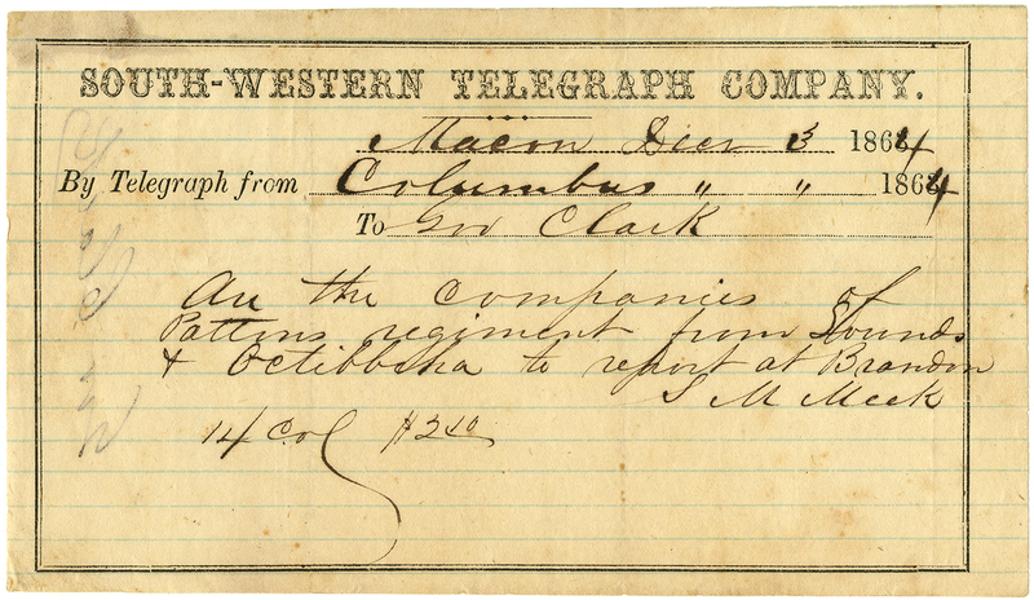 SOUTH-WESTERN TELEGRAPH COMPANY.
Macon Decr 3 1864
By Telegraph from Columbus " " 1864
To Gov Clark
Are the companies of
Pattons regiment from Lownds
& Octibbeha to report at Brandon
S M Meek
14 Col $2 40